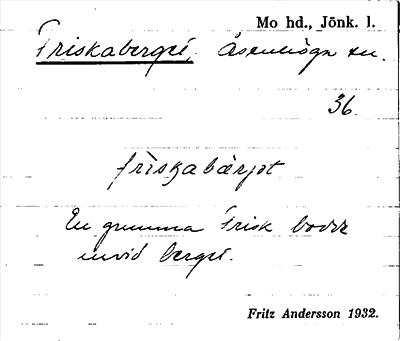 Mo hd., Jönk. l.
Friskaberget, Åsenhöga sn.
36.
friskabärjət
En gumma Frisk bodde
invid berget.
Fritz Andersson 1932.